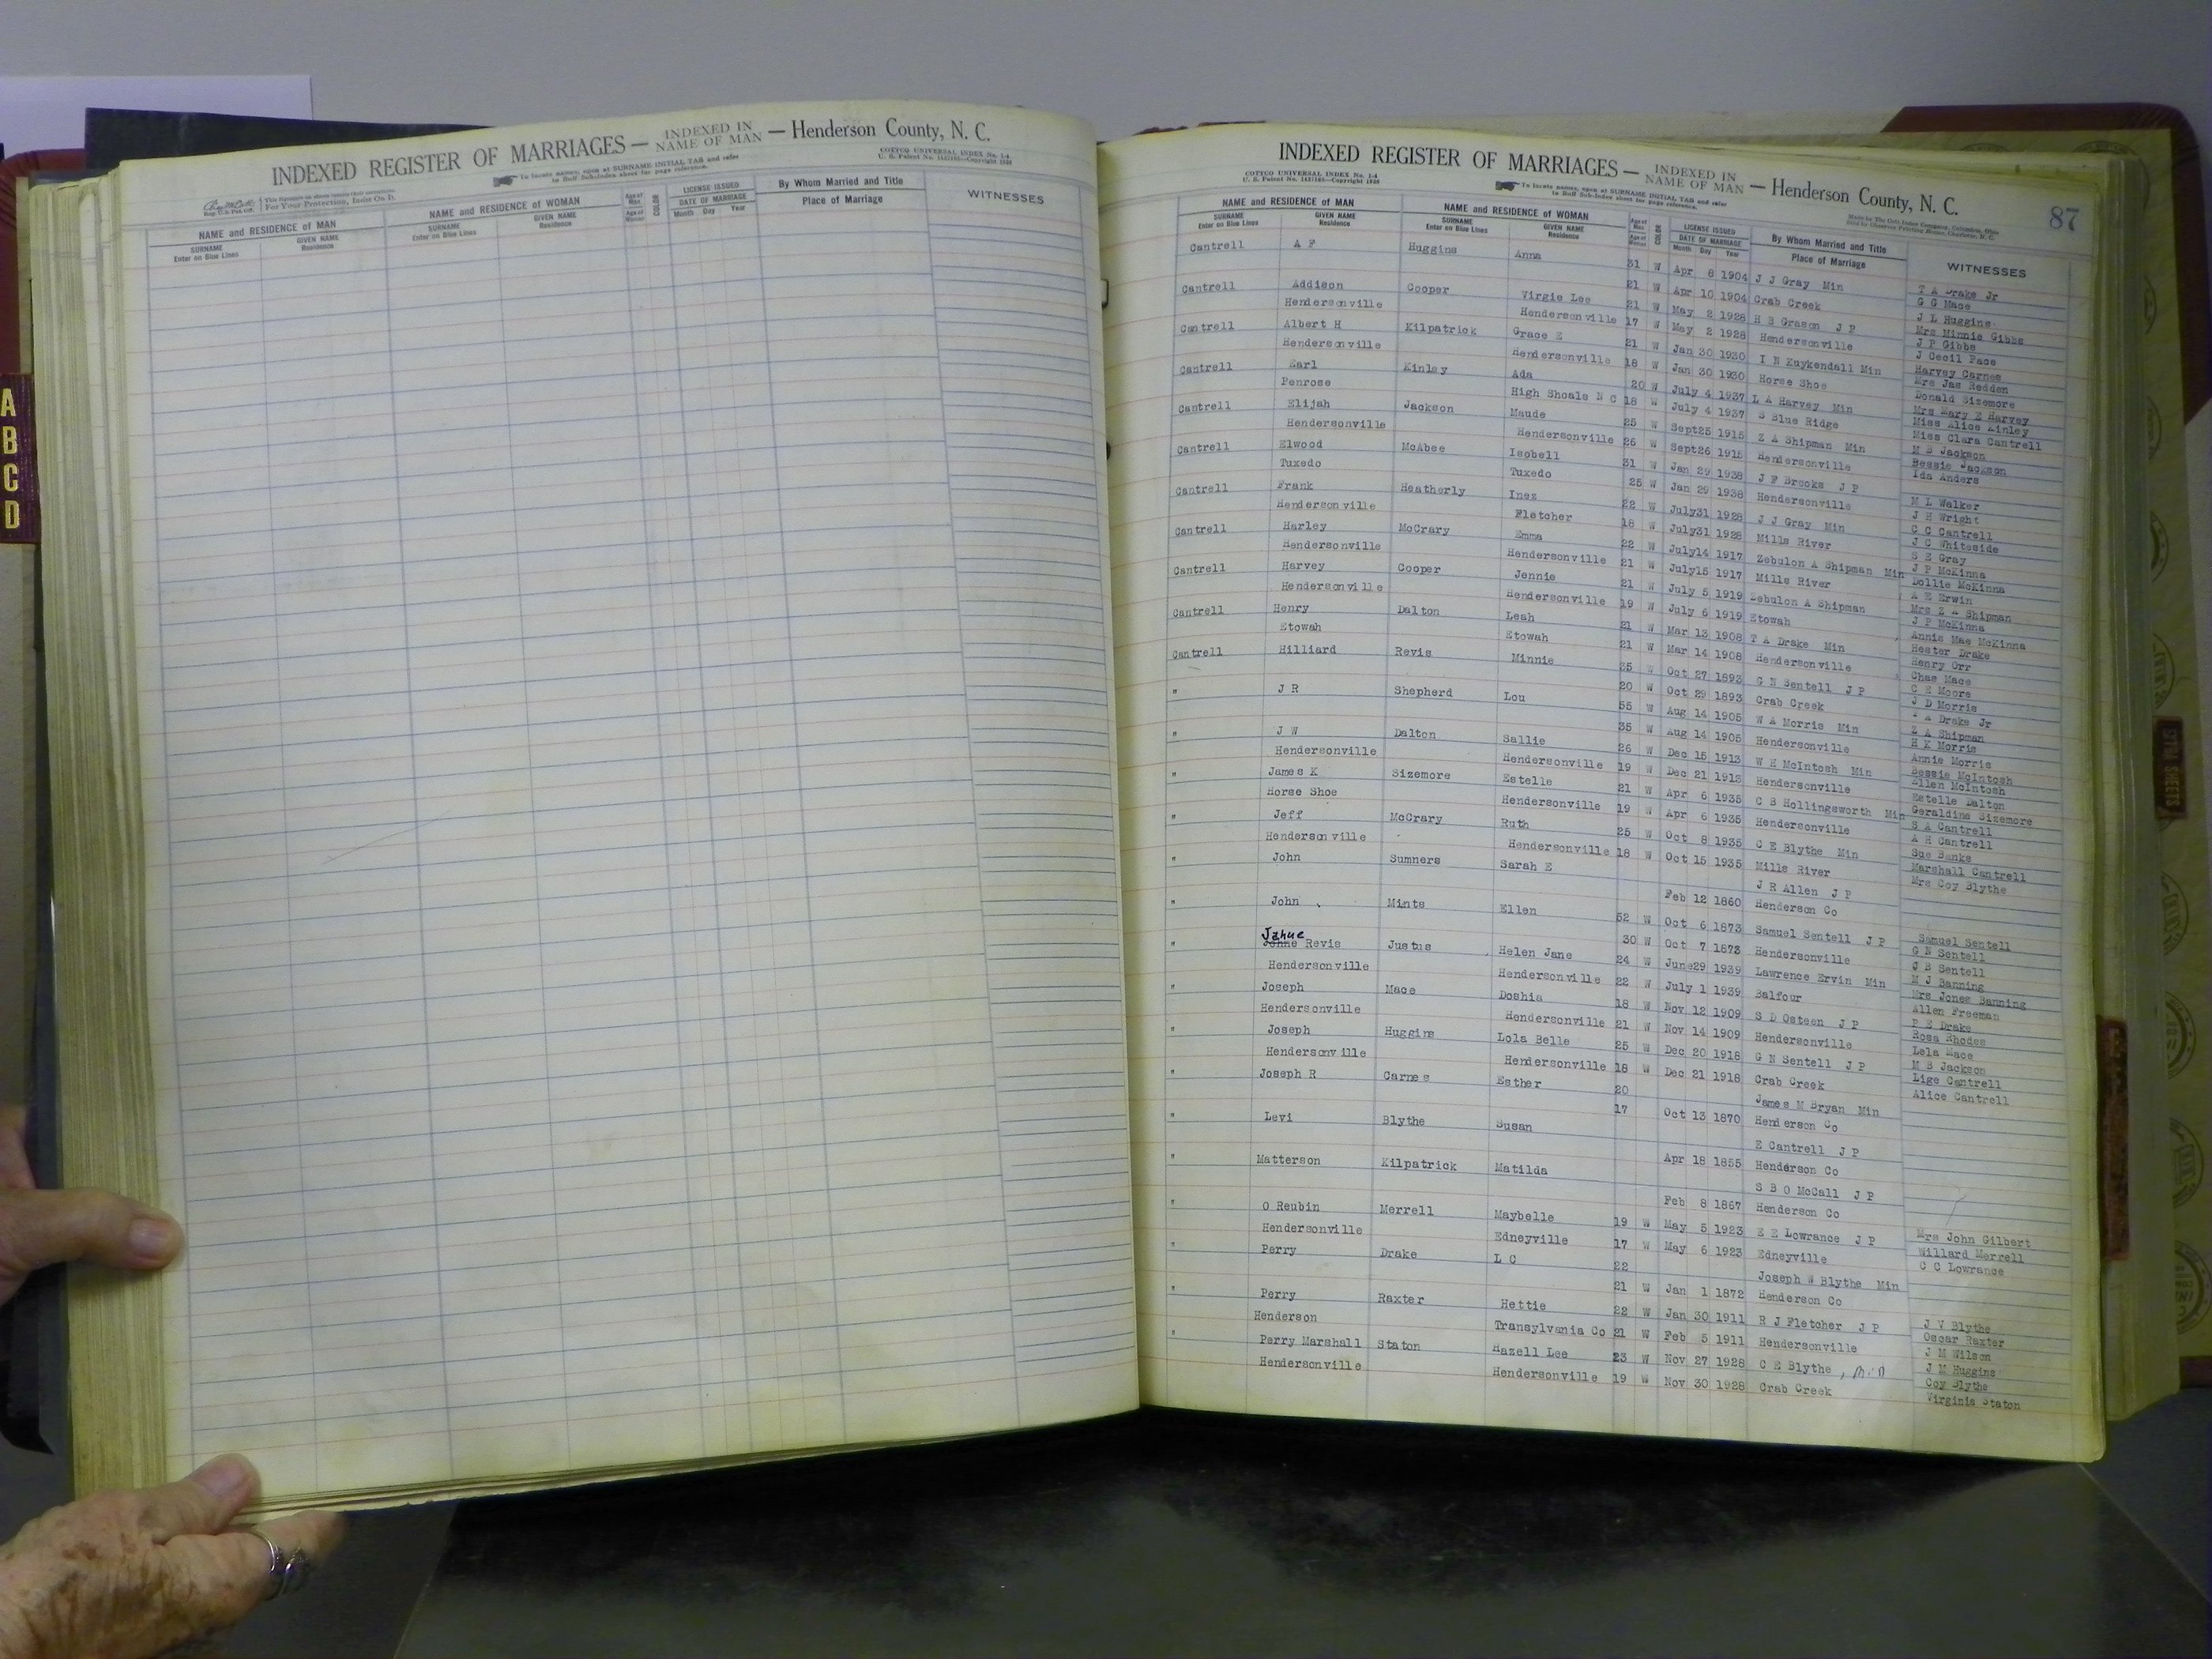 INDEXED REGISTER OF MARRIAGES — INDEXED IN NAME OF MAN — Henderson County, N. C.
To locate names, open at SURNAME INITIAL TAB and refer to Buff Sub-Index sheet for page reference.
COTTCO UNIVERSAL INDEX No. 1-4
For Your Protection, Insist On It.
NAME and RESIDENCE OF MAN NAME and RESIDENCE OF WOMAN COLOR LICENSE ISSUED By Whom Married and Title WITNESSES
SURNAME GIVEN NAME SURNAME GIVEN NAME DATE OF MARRIAGE Place of Marriage
Enter on Blue Lines Residence Enter on Blue Lines Residence Month Day Year
A
B
C
D
INDEXED REGISTER OF MARRIAGES — INDEXED IN NAME OF MAN — Henderson County, N. C.
87
COTTCO UNIVERSAL INDEX No. 1-4
To locate names, open at SURNAME INITIAL TAB and refer to Buff Sub-Index sheet for page reference.
NAME and RESIDENCE OF MAN NAME and RESIDENCE OF WOMAN COLOR LICENSE ISSUED By Whom Married and Title WITNESSES
SURNAME GIVEN NAME SURNAME GIVEN NAME DATE OF MARRIAGE Place of Marriage
Enter on Blue Lines Residence Enter on Blue Lines Residence Month Day Year
Cantrell A F Huggins Anna 31 W Apr 8 1904 J J Gray Min T A Drake Jr
21 W Apr 10 1904 Crab Creek G G Mace
J L Huggins
Cantrell Addison Cooper Virgie Lee 21 W May 2 1928 H B Grason J P Mrs Minnie Gibbs
Hendersonville Hendersonville 17 W May 2 1928 Hendersonville J P Gibbs
J Cecil Pace
Cantrell Albert H Kilpatrick Grace E 21 W Jan 30 1930 I N Kuykendall Min Harvey Carnes
Hendersonville Hendersonville 18 W Jan 30 1930 Horse Shoe Mrs Jas Redden
Donald Sizemore
Cantrell Earl Kinley Ada 20 W July 4 1937 L A Harvey Min Mrs Mary E Harvey
Penrose High Shoals N C 18 W July 4 1937 S Blue Ridge Miss Alice Kinley
Miss Clara Cantrell
Cantrell Elijah Jackson Maude 25 W Sept25 1915 Z A Shipman Min M B Jackson
Hendersonville Hendersonville 26 W Sept26 1915 Hendersonville Bessie Jackson
Ida Anders
Cantrell Elwood McAbee Isobell 31 W Jan 29 1938 J F Brooks J P
Tuxedo Tuxedo 25 W Jan 29 1938 Hendersonville M L Walker
J H Wright
Cantrell Frank Heatherly Inez 22 W July31 1928 J J Gray Min C C Cantrell
Hendersonville Fletcher 18 W July31 1928 Mills River J C Whiteside
S E Gray
Cantrell Harley McCrary Emma 22 W July14 1917 Zebulon A Shipman Min J P McKinna
Hendersonville Hendersonville 21 W July15 1917 Mills River Dollie McKinna
A E Erwin
Cantrell Harvey Cooper Jennie 21 W July 5 1919 Zebulon A Shipman Mrs Z A Shipman
Hendersonville Hendersonville 19 W July 6 1919 Etowah J P McKinna
Annie Mae McKinna
Cantrell Henry Dalton Leah 21 W Mar 13 1908 T A Drake Min Hester Drake
Etowah Etowah 21 W Mar 14 1908 Hendersonville Henry Orr
Chas Mace
Cantrell Hilliard Revis Minnie 25 W Oct 27 1893 G N Sentell J P C E Moore
20 W Oct 29 1893 Crab Creek J D Morris
T A Drake Jr
" J R Shepherd Lou 55 W Aug 14 1905 W A Morris Min Z A Shipman
35 W Aug 14 1905 Hendersonville H K Morris
Annie Morris
" J W Dalton Sallie 26 W Dec 15 1913 W H McIntosh Min Bessie McIntosh
Hendersonville Hendersonville 19 W Dec 21 1913 Hendersonville Ellen McIntosh
Estelle Dalton
" James K Sizemore Estelle 21 W Apr 6 1935 C B Hollingsworth Min Geraldine Sizemore
Horse Shoe Hendersonville 19 W Apr 6 1935 Hendersonville S A Cantrell
A H Cantrell
" Jeff McCrary Ruth 25 W Oct 8 1935 C E Blythe Min Sue Banks
Hendersonville Hendersonville 18 W Oct 15 1935 Mills River Marshall Cantrell
Mrs Coy Blythe
" John Sumners Sarah E J R Allen J P
Feb 12 1860 Henderson Co
" John Mints Ellen 52 W Oct 6 1873 Samuel Sentell J P Samuel Sentell
30 W Oct 7 1873 Hendersonville G N Sentell
C B Sentell
Jahue
" Revis Justus Helen Jane 24 W June29 1939 Lawrence Ervin Min M J Banning
Hendersonville Hendersonville 22 W July 1 1939 Balfour Mrs Jones Banning
Allen Freeman
" Joseph Mace Doshia 18 W Nov 12 1909 S D Osteen J P P E Drake
Hendersonville Hendersonville 21 W Nov 14 1909 Hendersonville Rosa Rhodes
Lela Mace
" Joseph Huggins Lola Belle 25 W Dec 20 1918 G N Sentell J P M B Jackson
Hendersonville Hendersonville 18 W Dec 21 1918 Crab Creek Lige Cantrell
Alice Cantrell
" Joseph R Carnes Esther 20 James M Bryan Min
17 Oct 13 1870 Henderson Co
" Levi Blythe Susan E Cantrell J P
Apr 18 1855 Henderson Co
" Matterson Kilpatrick Matilda S B O McCall J P
Feb 8 1867 Henderson Co
" O Reubin Merrell Maybelle 19 W May 5 1923 E E Lowrance J P Mrs John Gilbert
Hendersonville Edneyville 17 W May 6 1923 Edneyville Willard Merrell
C C Lowrance
" Perry Drake L C 22 Joseph W Blythe Min
21 W Jan 1 1872 Henderson Co
" Perry Raxter Hettie 22 W Jan 30 1911 R J Fletcher J P J V Blythe
Henderson Transylvania Co 21 W Feb 5 1911 Hendersonville Oscar Raxter
J M Wilson
" Perry Marshall Staton Hazell Lee 23 W Nov 27 1928 C E Blythe , Min J M Huggins
Hendersonville Hendersonville 19 W Nov 30 1928 Crab Creek Coy Blythe
Virginia Staton